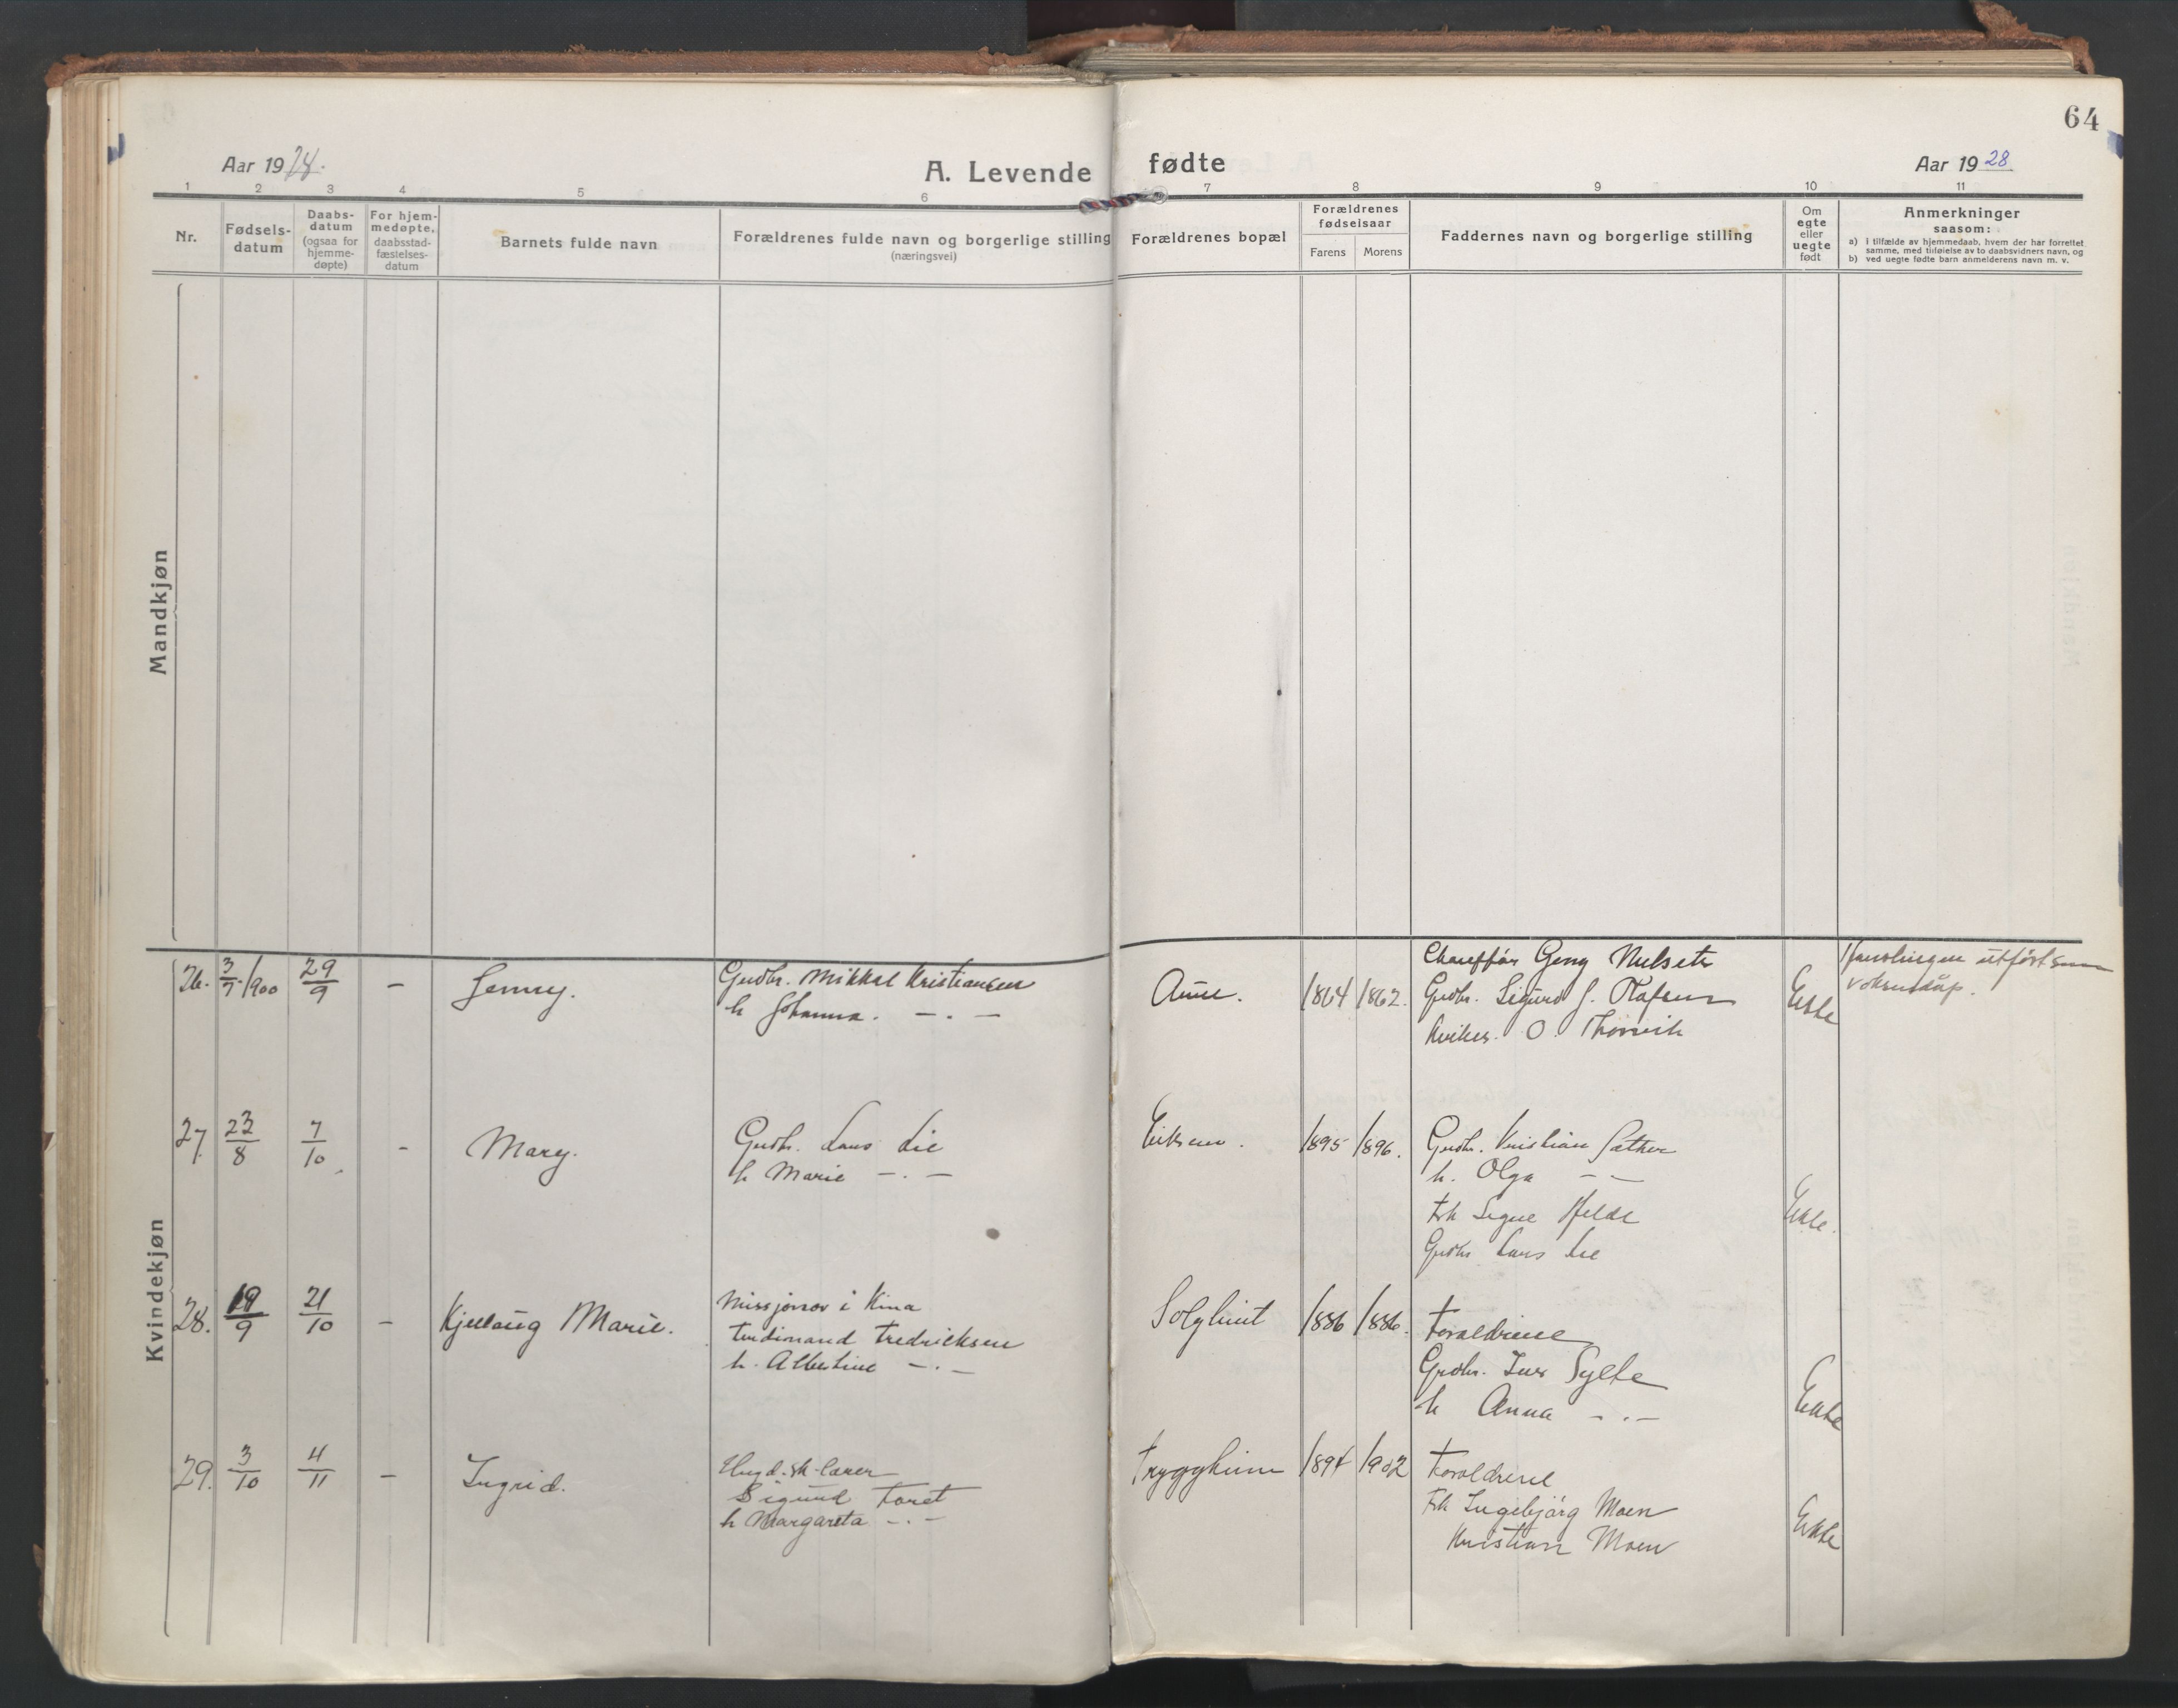 64
Aar 1928.
A. Levende fødte
Aar 1928
1 2 3 4 5 6 7 8 9 10 11
Nr.
Fødsels-
datum
Daabs-
datum
(ogsaa for
hjemme-
døpte)
For hjem-
medøpte,
daabsstad-
fæstelses-
datum
Barnets fulde navn
Forældrenes fulde navn og borgerlige stilling
(næringsvei)
Forældrenes bopæl
Forældrenes
fødselsaar
Farens Morens
Faddernes navn og borgerlige stilling
Om
egte
eller
uegte
født
Anmerkninger
saasom:
a) i tilfælde av hjemmedaab, hvem der har forrettet
samme, med tilføielse av to daabsvidners navn, og
b) ved uegte fødte barn anmelderens navn m. v.
Mandkjøn
Kvindekjøn
26. 3/7 1900 29/9 – Jenny.
Gårdbr. Mikkal Kristiansen
h Johanna. –.–
Aune. 1864 1862.
Chauffør Georg
Gårdbr. Sigurd J. Olafsen
O. Thorvik
Ekte
Handlingen utført som
voksendåp.
27. 23/8 7/10 – Mary.
Gårdbr. Lars Lie
h Marie –.–
1895 1896.
Gårdbr. Kristian Sæther
h. Olga – –
Frk Signe
Gårdbr Lars Lie
Ekte.
28. 19/9 21/10 – Kjellaug Marie.
Missjonær i Kina
Ferdinand Fredriksen
h. Albertine –.–
Solglimt 1886 1886.
Foreldrene
Gårdbr. Iver Sylte
h Anna –.–
Ekte
29. 3/10 4/11 – Ingrid.
Ungd.sk.lærer
Sigurd Foret
h Margareta –.–
Tryggheim 1894 1902
Foreldrene
Frk Ingebjørg Moen
Kristian Moen
Ekte